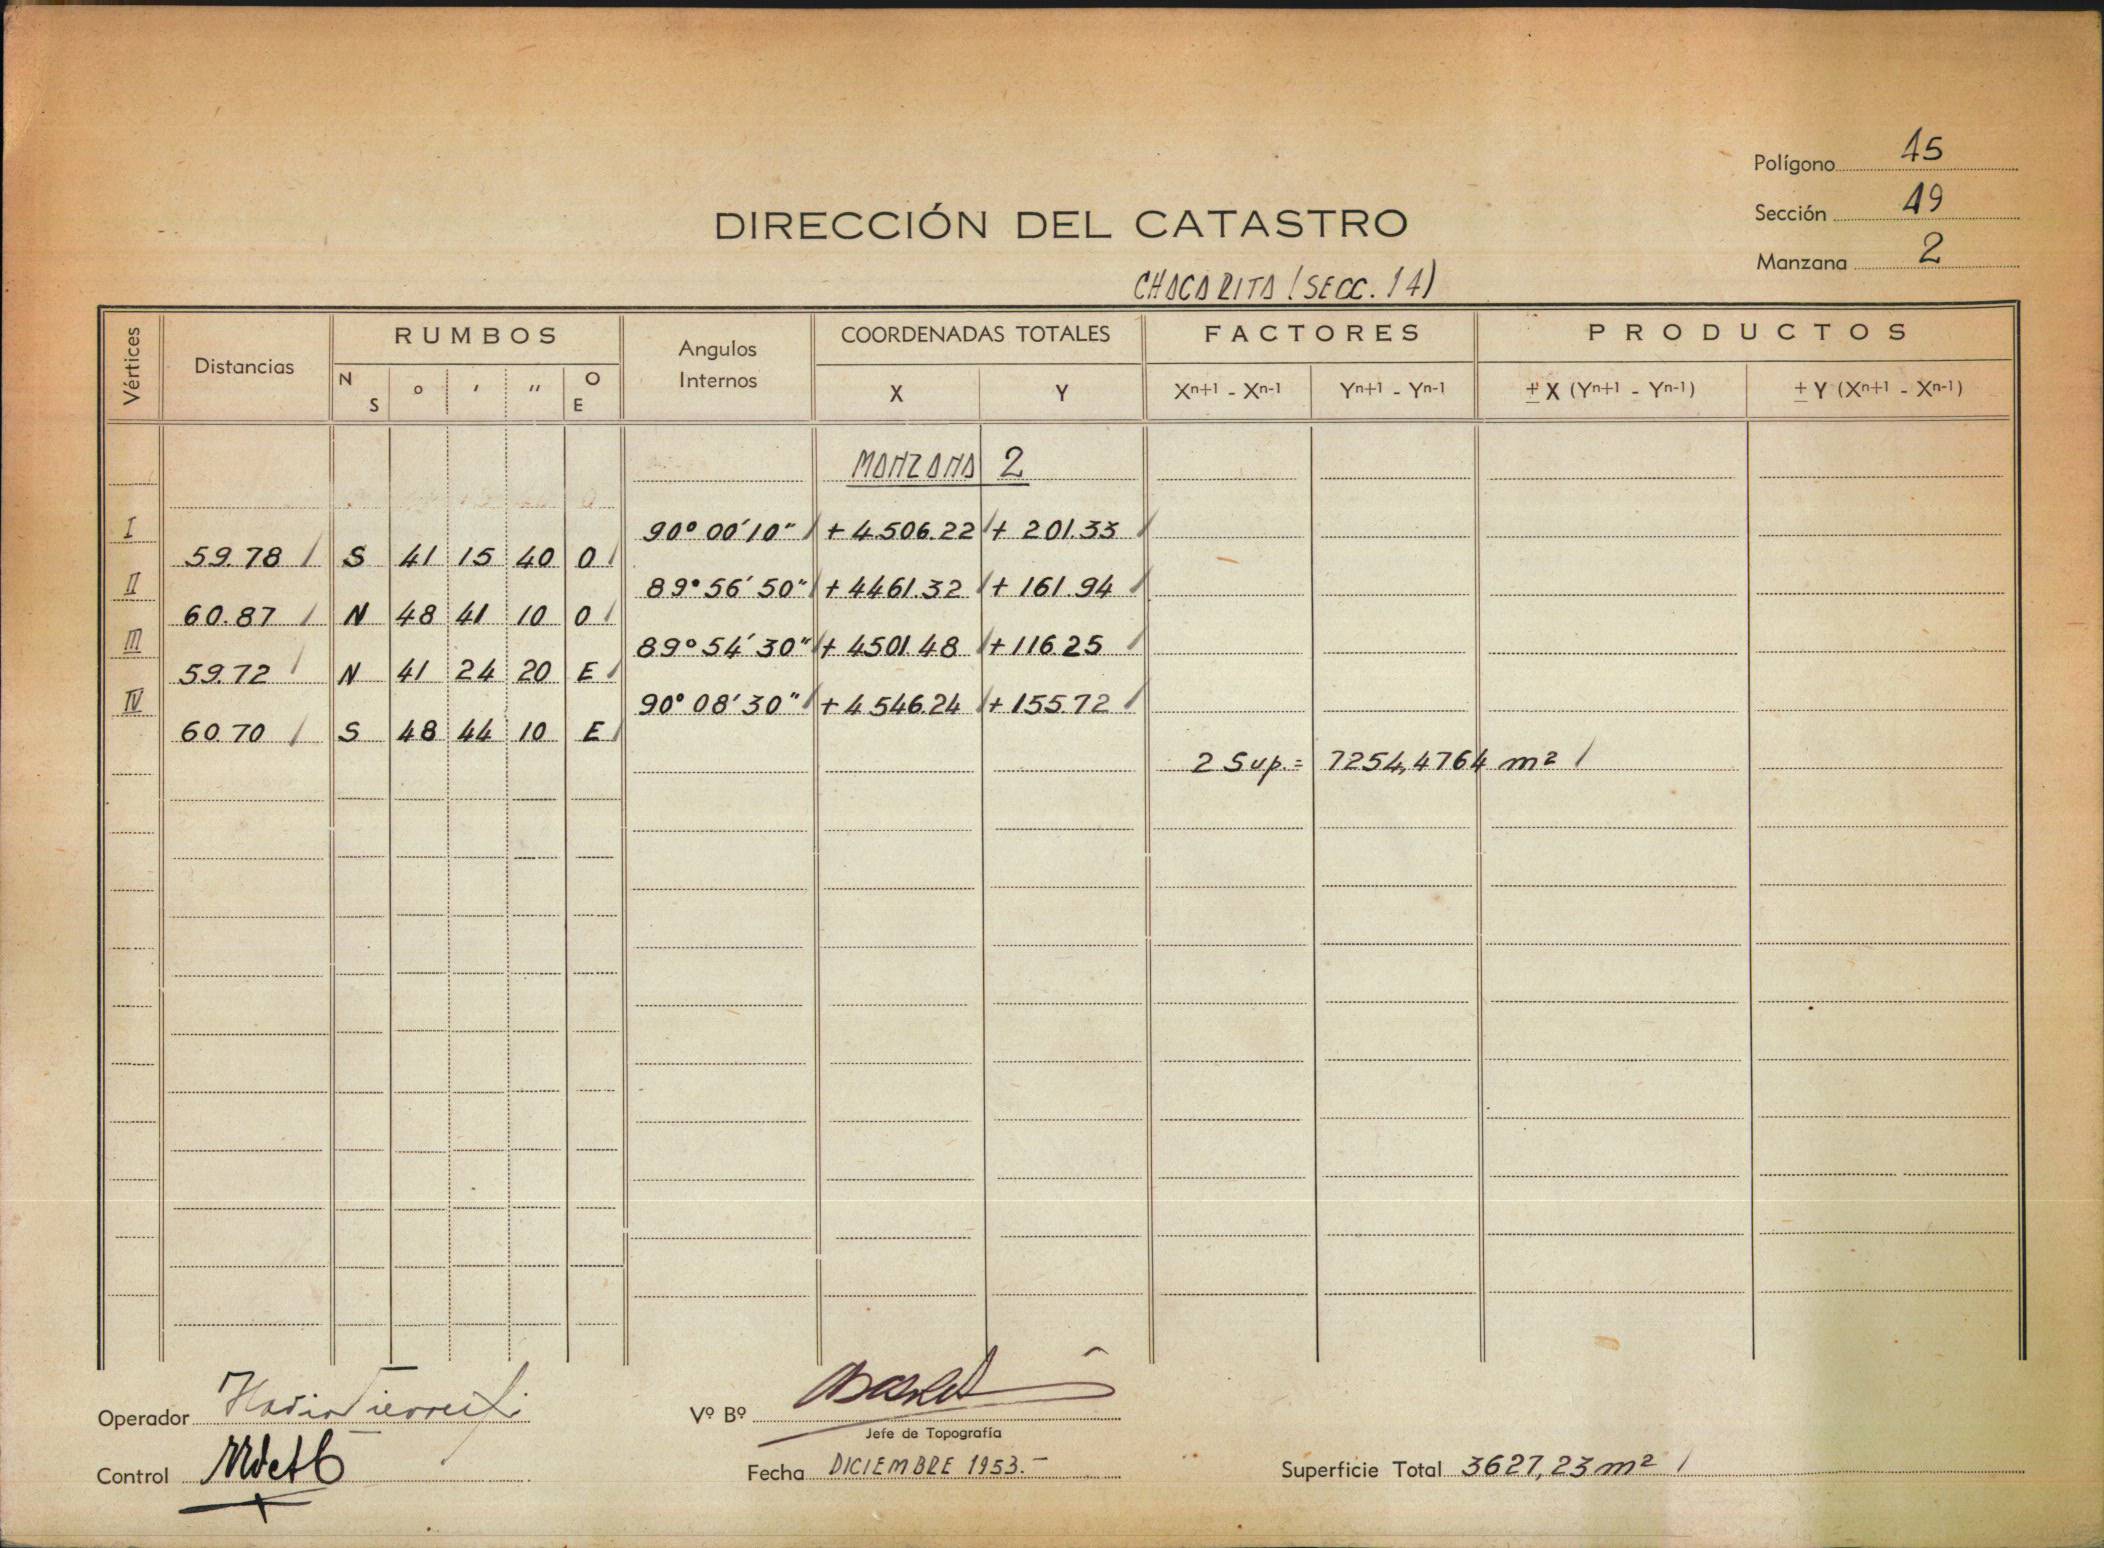 Polígono 15
Sección 19
Manzana 2
DIRECCIÓN DEL CATASTRO
CHACARITA (SECC. 14)
Vértices Distancias RUMBOS Angulos Internos COORDENADAS TOTALES FACTORES PRODUCTOS
N S ° ′ ″ O E X Y Xn+1 - Xn-1 Yn+1 - Yn-1 ± X (Yn+1 - Yn-1) ± Y (Xn+1 - Xn-1)
MANZANA 2
I 90° 00′ 10″ + 4506.22 + 201.33
59.78 S 41 15 40 O
II 89° 56′ 50″ + 4461.32 + 161.94
60.87 N 48 41 10 O
III 89° 54′ 30″ + 4501.48 + 116.25
59.72 N 41 24 20 E
IV 90° 08′ 30″ + 4546.24 + 155.72
60.70 S 48 44 10 E
2 Sup. = 7254,4764 m²
Operador
Vº Bº
Jefe de Topografía
Control
Fecha DICIEMBRE 1953.-
Superficie Total 3627,23 m²